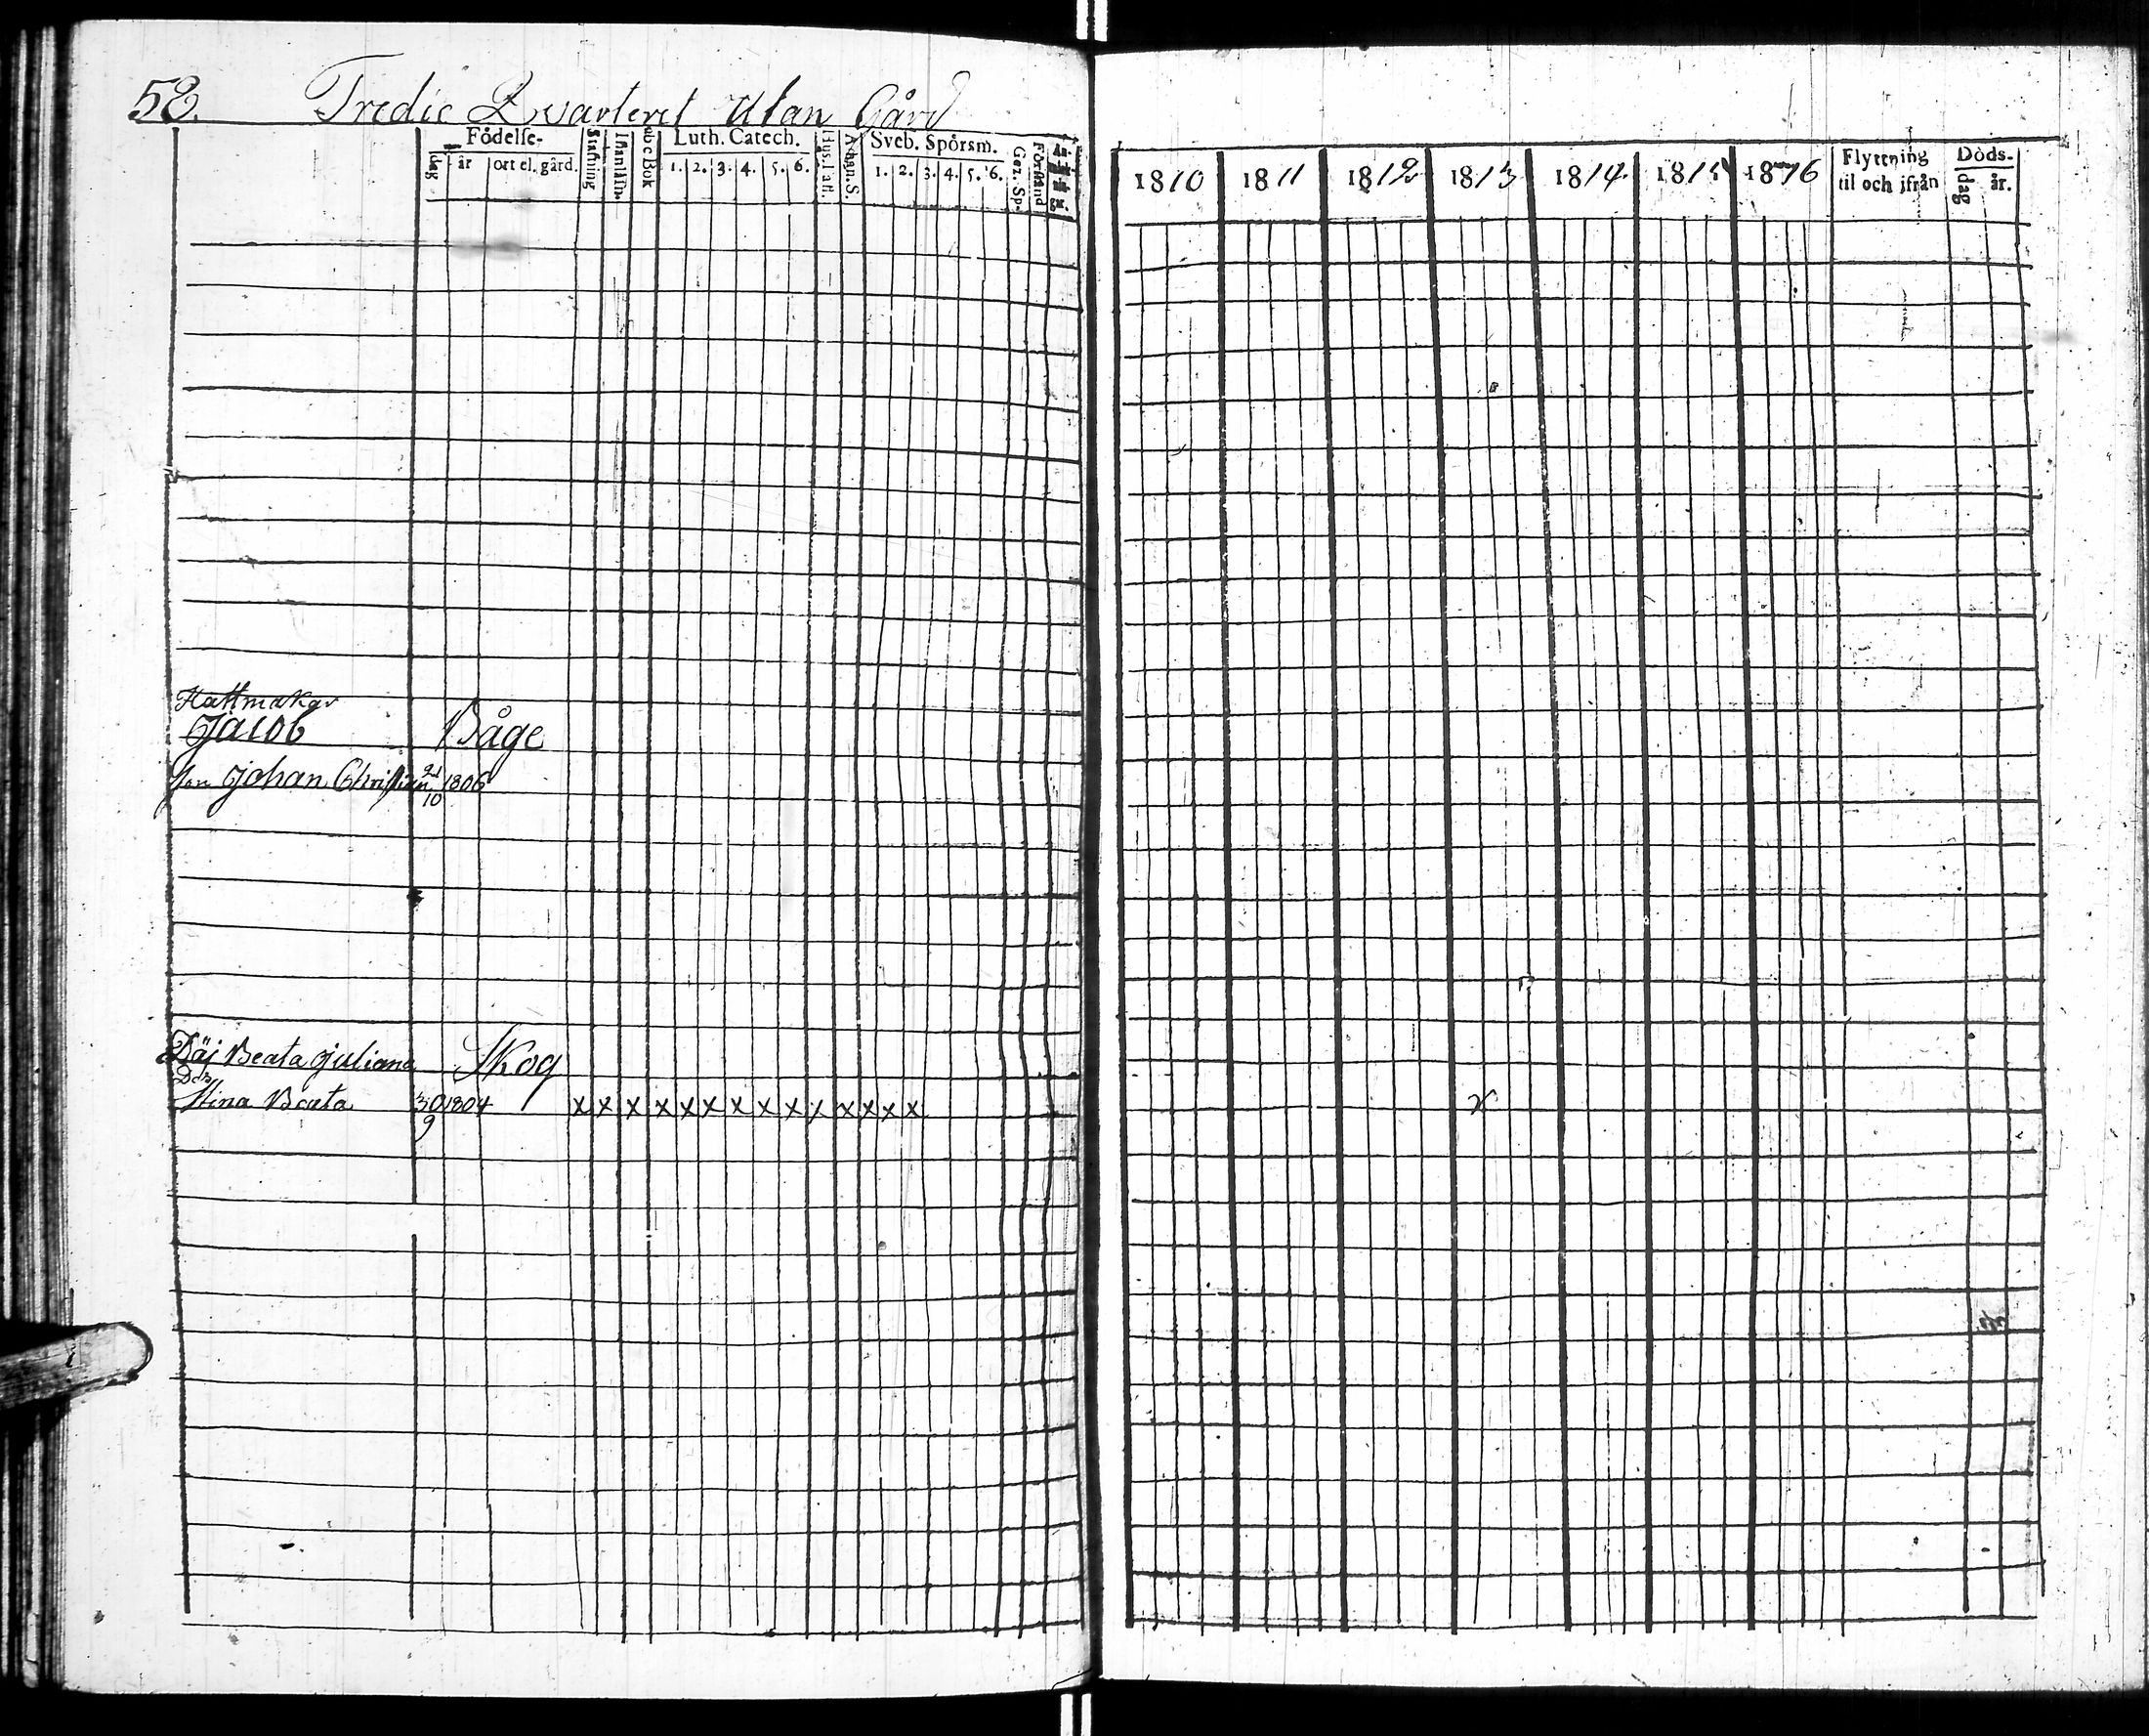 58. Tredie Qvarteret Utan Gård
Födelse- Luth. Catech. Sveb. Spörsm.
dag år ort el. gård. Stafning abc Bok 1. 2. 3. 4. 5. 6. Hustafl. 1. 2. 3. 4. 5. 6. Gez. Sp. Förstånd
1810 1811 1812 1813 1814 1815 1816 Flyttning til och ifrån Döds- dag år.
Hattmakar
Jacob Båge
Son Johan Christian 21/10 1806
Däj Beata Juliana Skog
Dotr
Stina Beata 30/9 1804 x x x x x x x x x x x x x x x